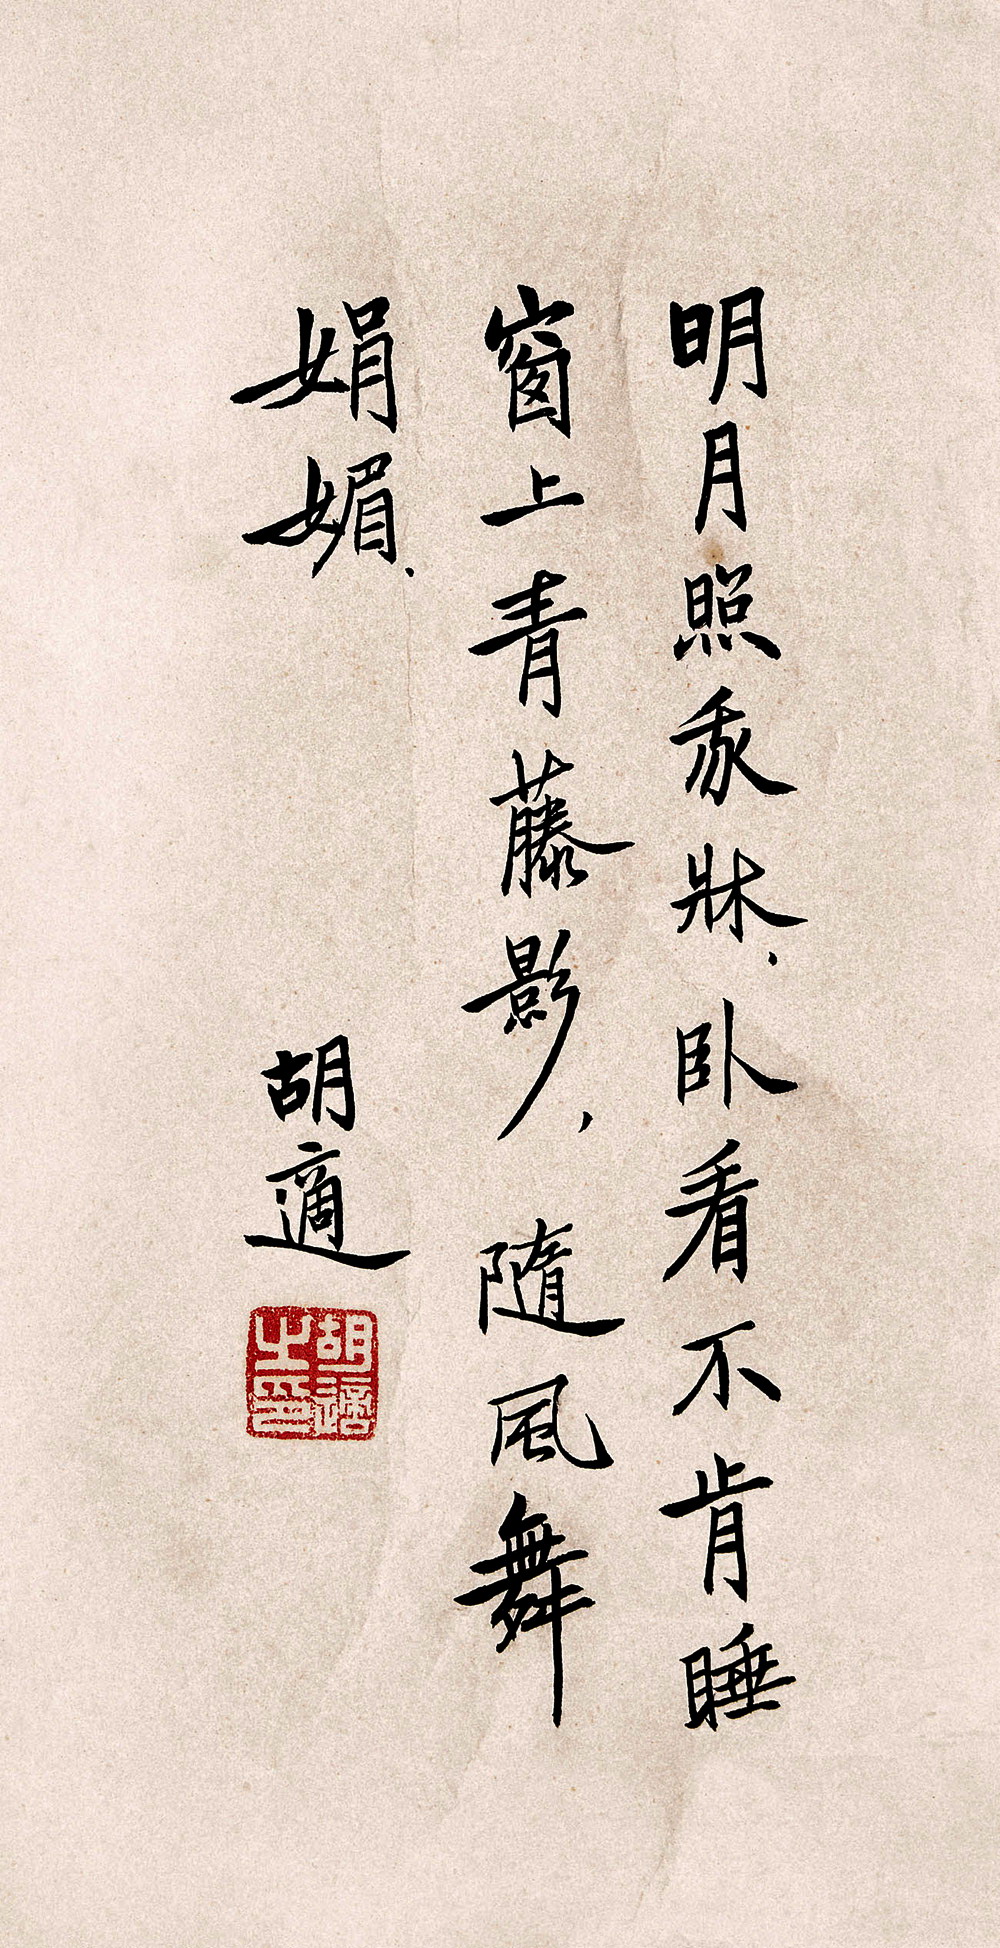 明月照我牀、卧看不肯睡
窗上青藤影、隨風舞
娟媚、
胡適
胡適之印